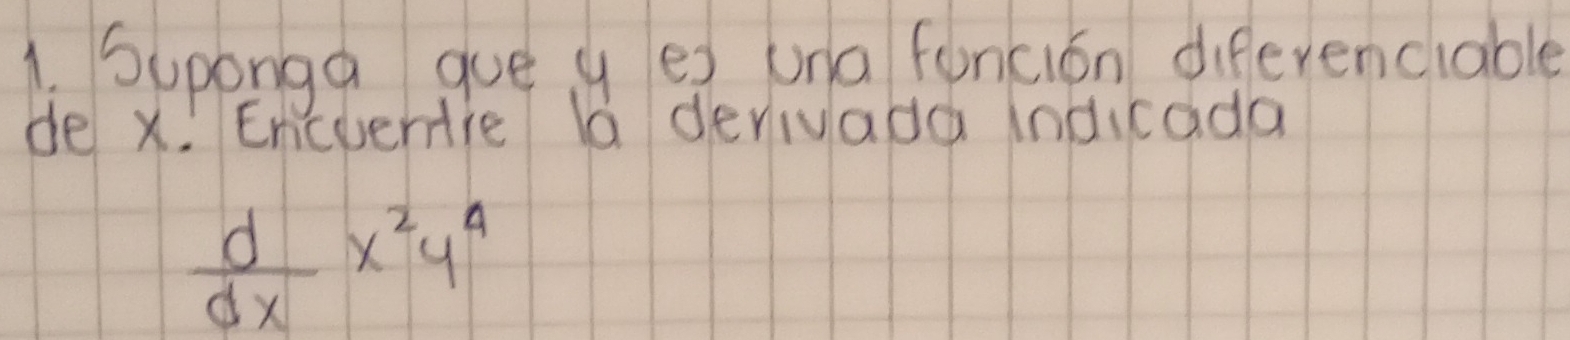 1. Suponga que y es una función diferenciable
de x. Encuentre la derivada indicada
d/dx x²y⁴